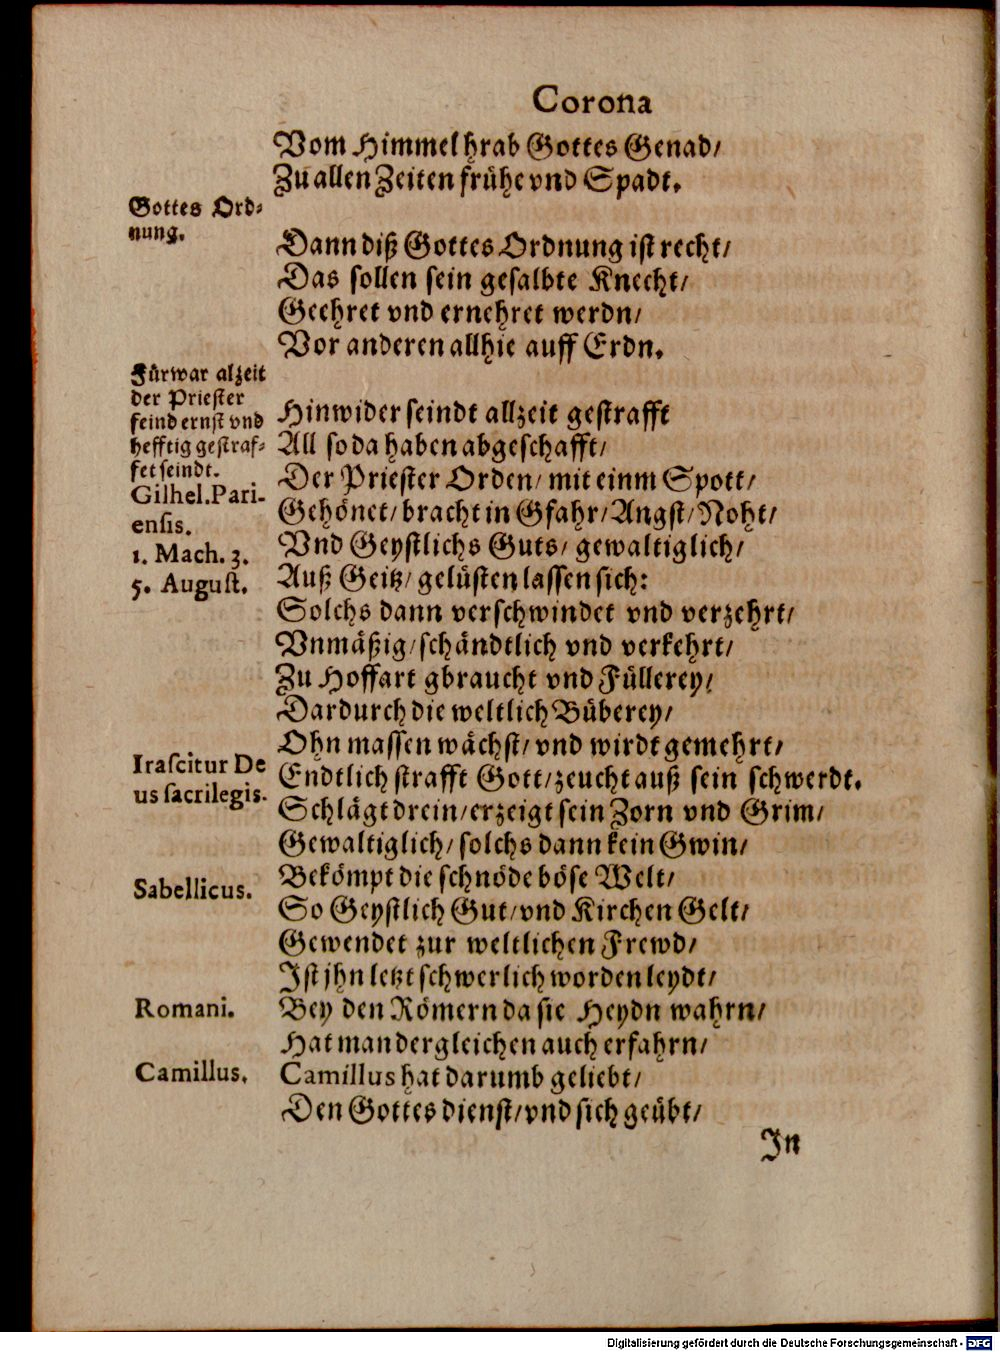 Corona
Vom Himmel hrab Gottes Genad/
Zu allen Zeiten frühe vnd Spadt.
Gottes Ord-
nung.
Dann diß Gottes Ordnung ist recht/
Das sollen sein gesalbte Knecht/
Geehret vnd ernehret werdn/
Vor anderen allhie auff Erdn.
Fürwar alzeit
der Priester
feind ernst vnd
hefftig gestraf-
fet seindt.
Gilhel. Pari-
ensis.
1. Mach. 3.
5. August.
Hinwider seindt allzeit gestrafft
All so da haben abgeschafft/
Der Priester Orden/ mit einm Spott/
Gehönet/ bracht in Gfahr/ Angst/ Noht/
Vnd Geystlichs Guts/ gewaltiglich/
Auß Geitz/ gelüsten lassen sich:
Solchs dann verschwindet vnd verzehrt/
Vnmäßig/ schändtlich vnd verkehrt/
Zu Hoffart gbraucht vnd Füllerey/
Dardurch die weltlich Büberey/
Ohn massen wächst/ vnd wirdt gemehrt/
Irascitur De
us sacrilegis.
Endtlich strafft Gott/ zeucht auß sein schwerdt.
Schlägt drein/ erzeigt sein Zorn vnd Grim/
Gewaltiglich/ solchs dann kein Gwin/
Sabellicus.
Bekömpt die schnöde böse Welt/
So Geystlich Gut/ vnd Kirchen Gelt/
Gewendet zur weltlichen Frewd/
Ist jhn letzt schwerlich worden leydt/
Romani.
Bey den Römern da sie Heydn wahrn/
Hat man dergleichen auch erfahrn/
Camillus.
Camillus hat darumb geliebt/
Den Gottes dienst/ vnd sich geübt/
In
Digitalisierung gefördert durch die Deutsche Forschungsgemeinschaft - DFG